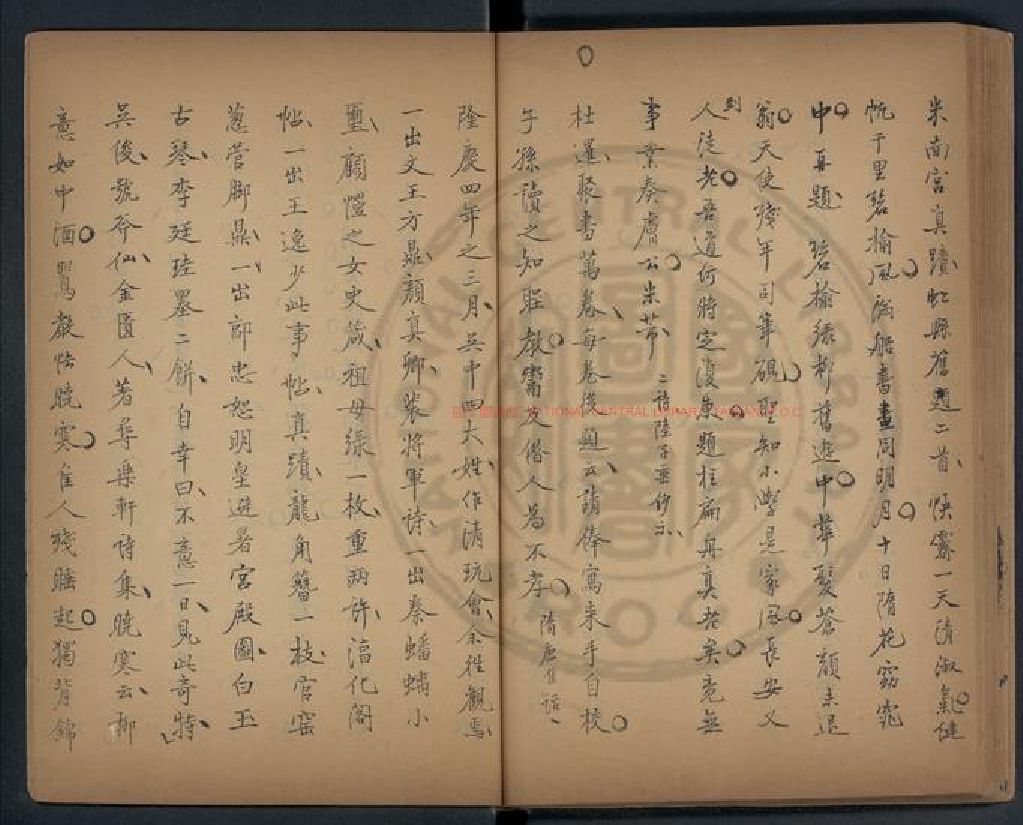 米南宮真蹟虹縣舊題二首快霽一天清淑氣健
帆千里碧榆風滿船書畫同明月十日隋花窈窕
中再題碧榆綠柳舊遊中華髮蒼顏未退
翁天使殘年司筆硯聖知小學是家風長安又
到
人徒老吾道何時定復東題柱扁舟真老矣竟無
事業奏膚公米芾二詩陸子垂抄示
杜暹聚書萬卷每卷後題云請俸寫來手自校
子孫讀之知聖教鬻及借人為不孝隋唐佳話
隆慶四年之三月吳中四大姓作清玩會余往觀焉
一出文王方鼎顏真卿裴將軍詩一出秦蟠螭小
璽顧愷之女史箴祖母綠一枚重兩許淳化閣
帖一出王逸少此事帖真蹟龍角簪一枝官窰
葱管腳鼎一出郭忠恕明皇避暑宮殿圖白玉
古琴李廷珪墨二餅自幸曰不意一日見此奇特
吳俊號仙金匱人著尋樂軒詩集曉寒云柳
意如中酒鶯聲怯曉寒佳人殘睡起獨背錦
NATIONAL CENTRAL LIBRARY, TAIWAN, R.O.C
NATIONAL CENTRAL LIBRARY
R.O.C